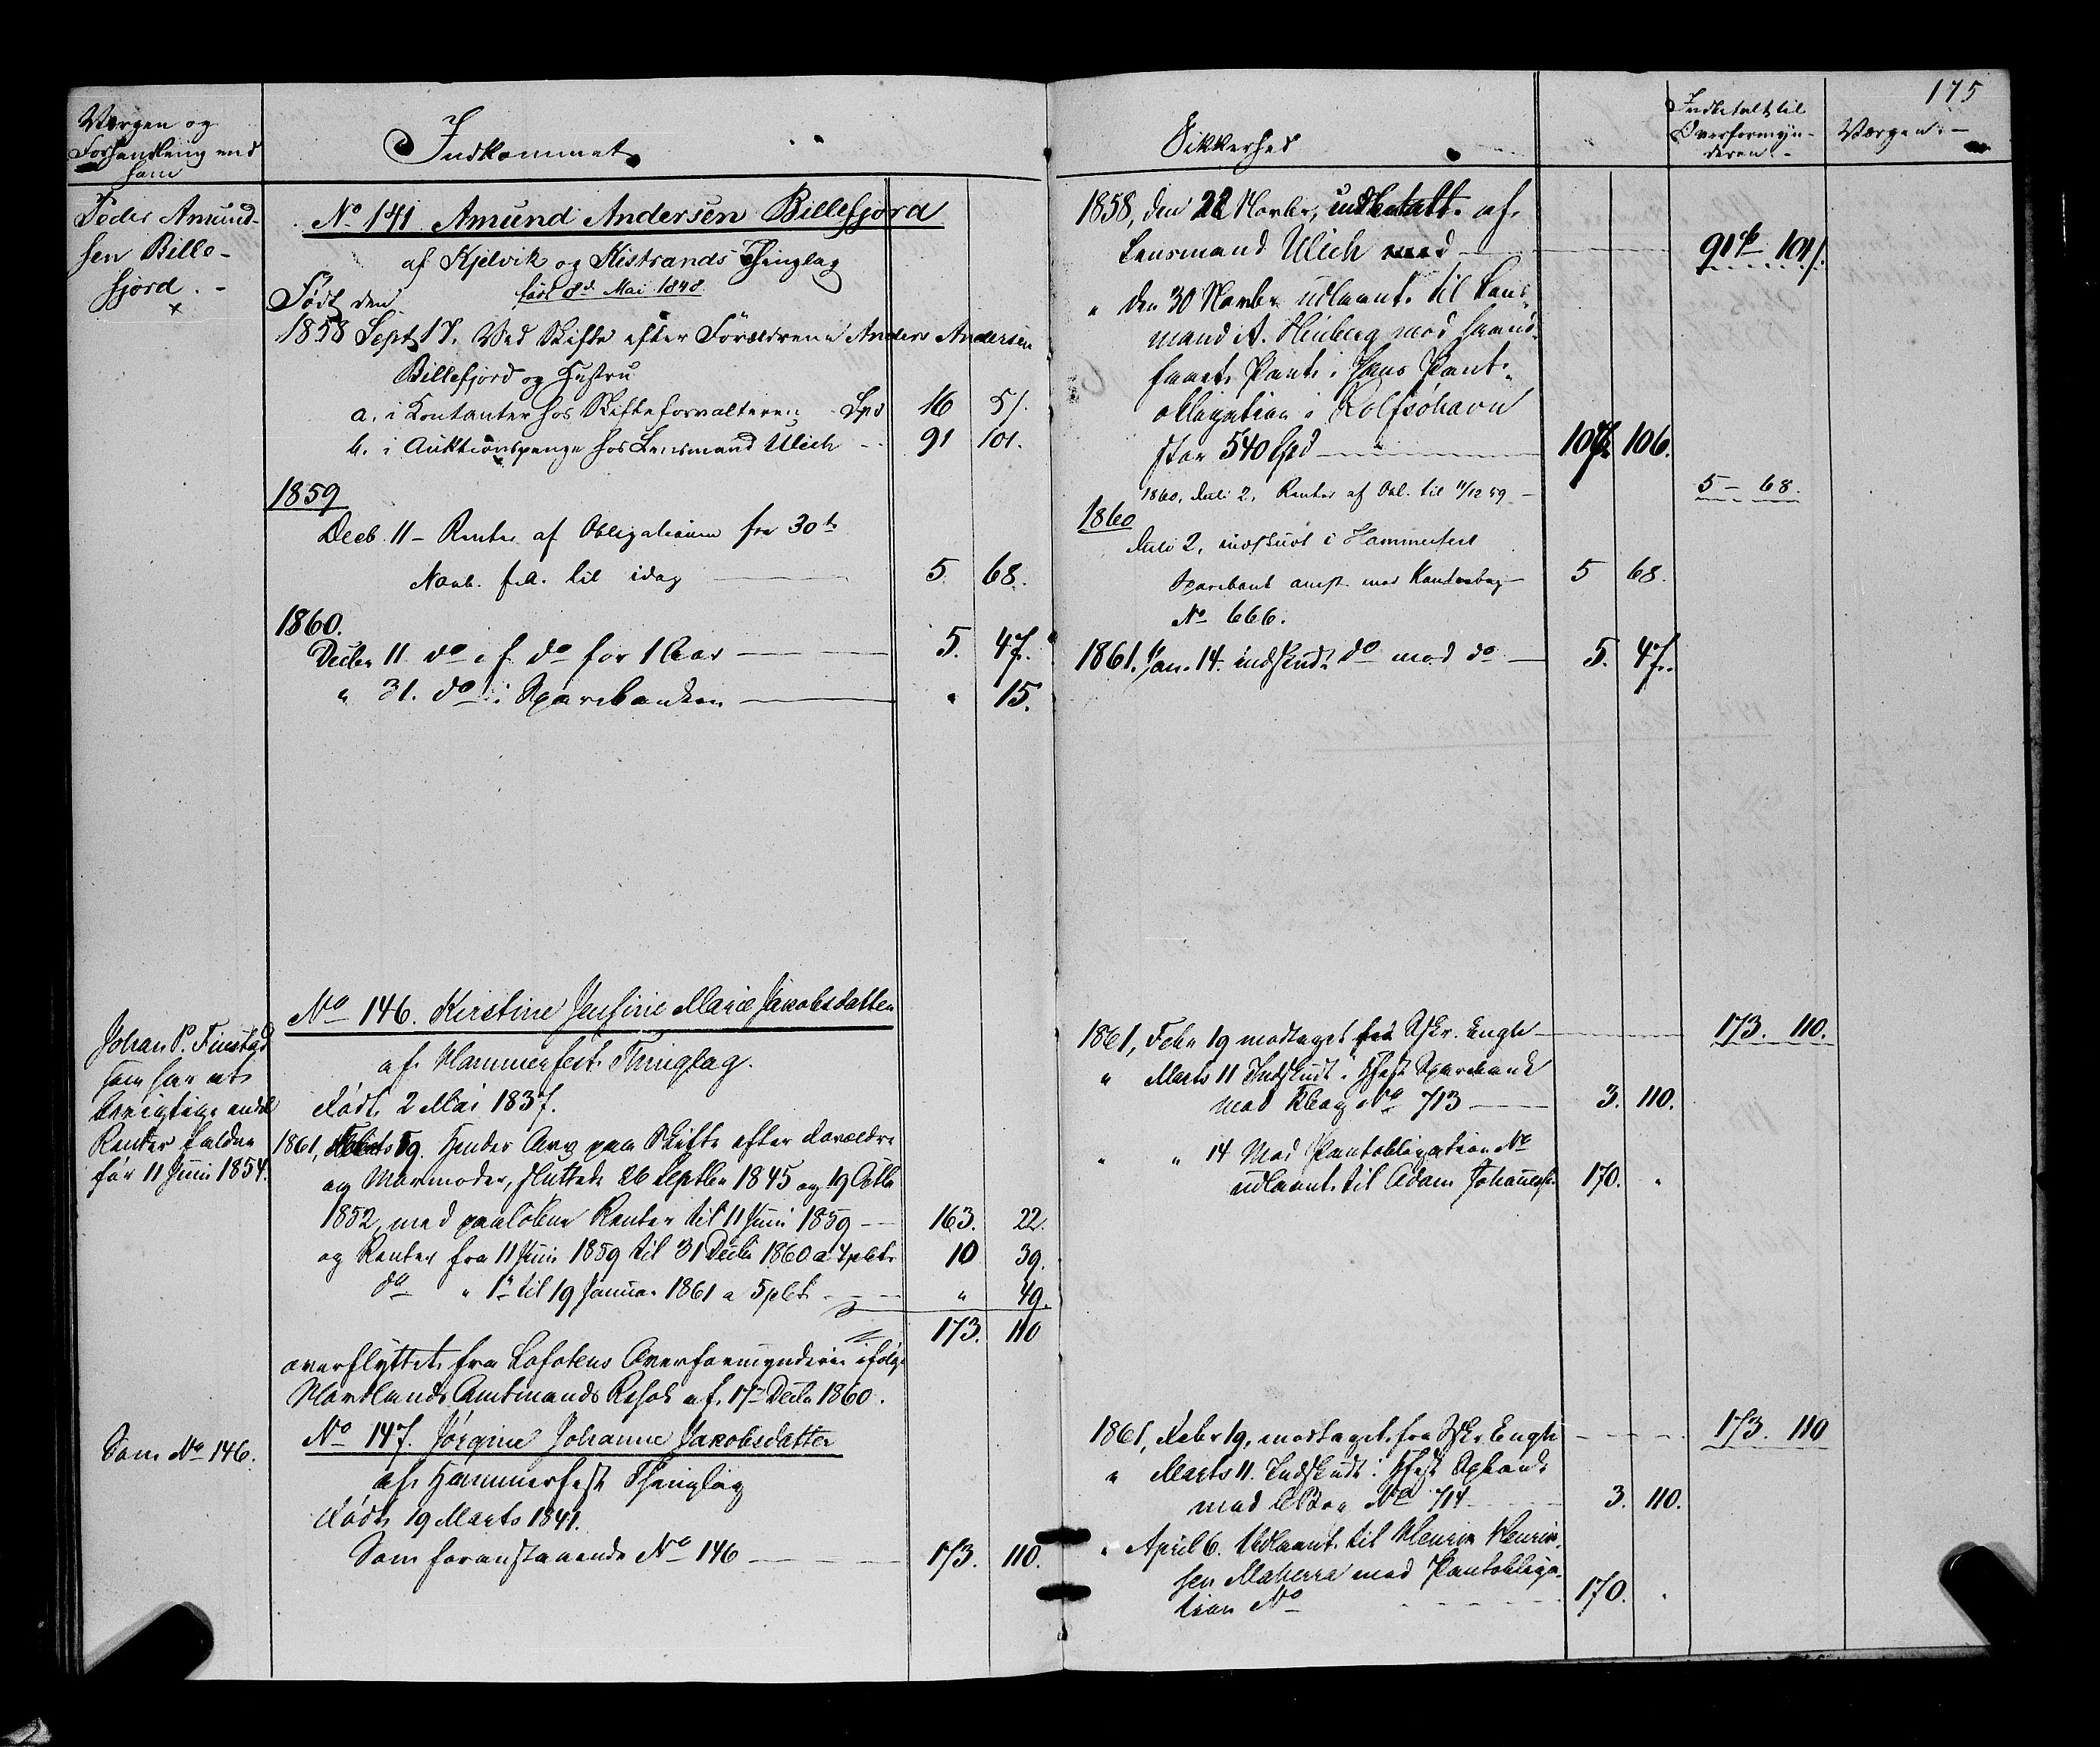 175
Værgen og
Forhandling med
ham
Indkommet
Sikkerhed
Indbetalt til
Overformyn-
deren.-
Værgen.-
Peder Amund-
sen Bille-
fjord.-
x
No 141 Amund Andersen Billefjord
af Kjelvik og Kistrands Thinglag
Født den
før 8de Mai 1848.
1858 Sept 17. Ved Skifte efter Forældrene Anders Andersen
Billefjord og Hustru
a. i Kontanter hos Skifteforvalteren - Spd 16 5/.
b. i Auktionspenge hos Lensmand Ulich - 91 101.
1859
Decb. 11 - Renter af Obligationen fra 30te
Novb. f.A. til idag 5 68.
1860.
Decbr 11 do af do for 1 Aar 5. 47.
" 31. do i Sparebanken " 15.
Johan P. Finstad
som har at
berigtige endel
Renter faldne
før 11 Juni 1854.
No 146. Kirstine Jensine Marie Jakobsdatter
af Hammerfest Thinglag.
Født 2 Mai 1837.
1861, 19. Hendes Arv paa Skifte efter Forældre
og Mormoder, sluttet 26 Septbr 1845 og 19 Octbr
1852, med paaløbne Renter til 11 Juni 1859 163. 22.
og Renter fra 11 Juni 1859 til 31 Decbr 1860 a 4 pCt 10 39.
do " 1ste til 19 Januar 1861 a 5 pCt " 49.
173. 110
overflyttet fra Lofotens Overformynderi ifølge
Nordlands Amtmands Resol. af 17de Decbr 1860.
Som No 146.
No 147. Jørgine Johanne Jakobsdatter
af Hammerfest Thinglag
Født 19 Marts 1841.
Som foranstaaende No 146 173. 110.
1858, den 22 Novbr, indbetalt af
Lensmand Ulich med 91 101/.
" den 30 Novbr udlaant til Lens-
mand A. Heuberg mod haand-
faaet Pant i Hans Pant-
obligation i Rolfsøhavn
stor 540 Spd 107 106.
1860, Juli 2. Renter af Obl. til 11/12 59 - 5 - 68.
1860
Juli 2, indskudt i Hammerfest
Sparebank mod Kontrabog 5 68.
No 666.
1861. Jan. 14. indskudt do mod do 5. 47.
1861, Febr 19 modtaget fra Skr. Engh 173. 110.
" Marts 11 Indskudt i Hfest Sparebank
mod Kbog No 713 3. 110.
" " 14 Mod Pantobligation No
udlaant til Adam Johannes. 170. "
1861, Febr 19, modtaget fra Skr. Engh 173. 110
" Marts 11. Indskudt i Hfest Spbank
mod CBog No 714 3. 110.
" April 6. Udlaant til Henrik Henrik-
sen mod Pantobliga-
tion No 170. "